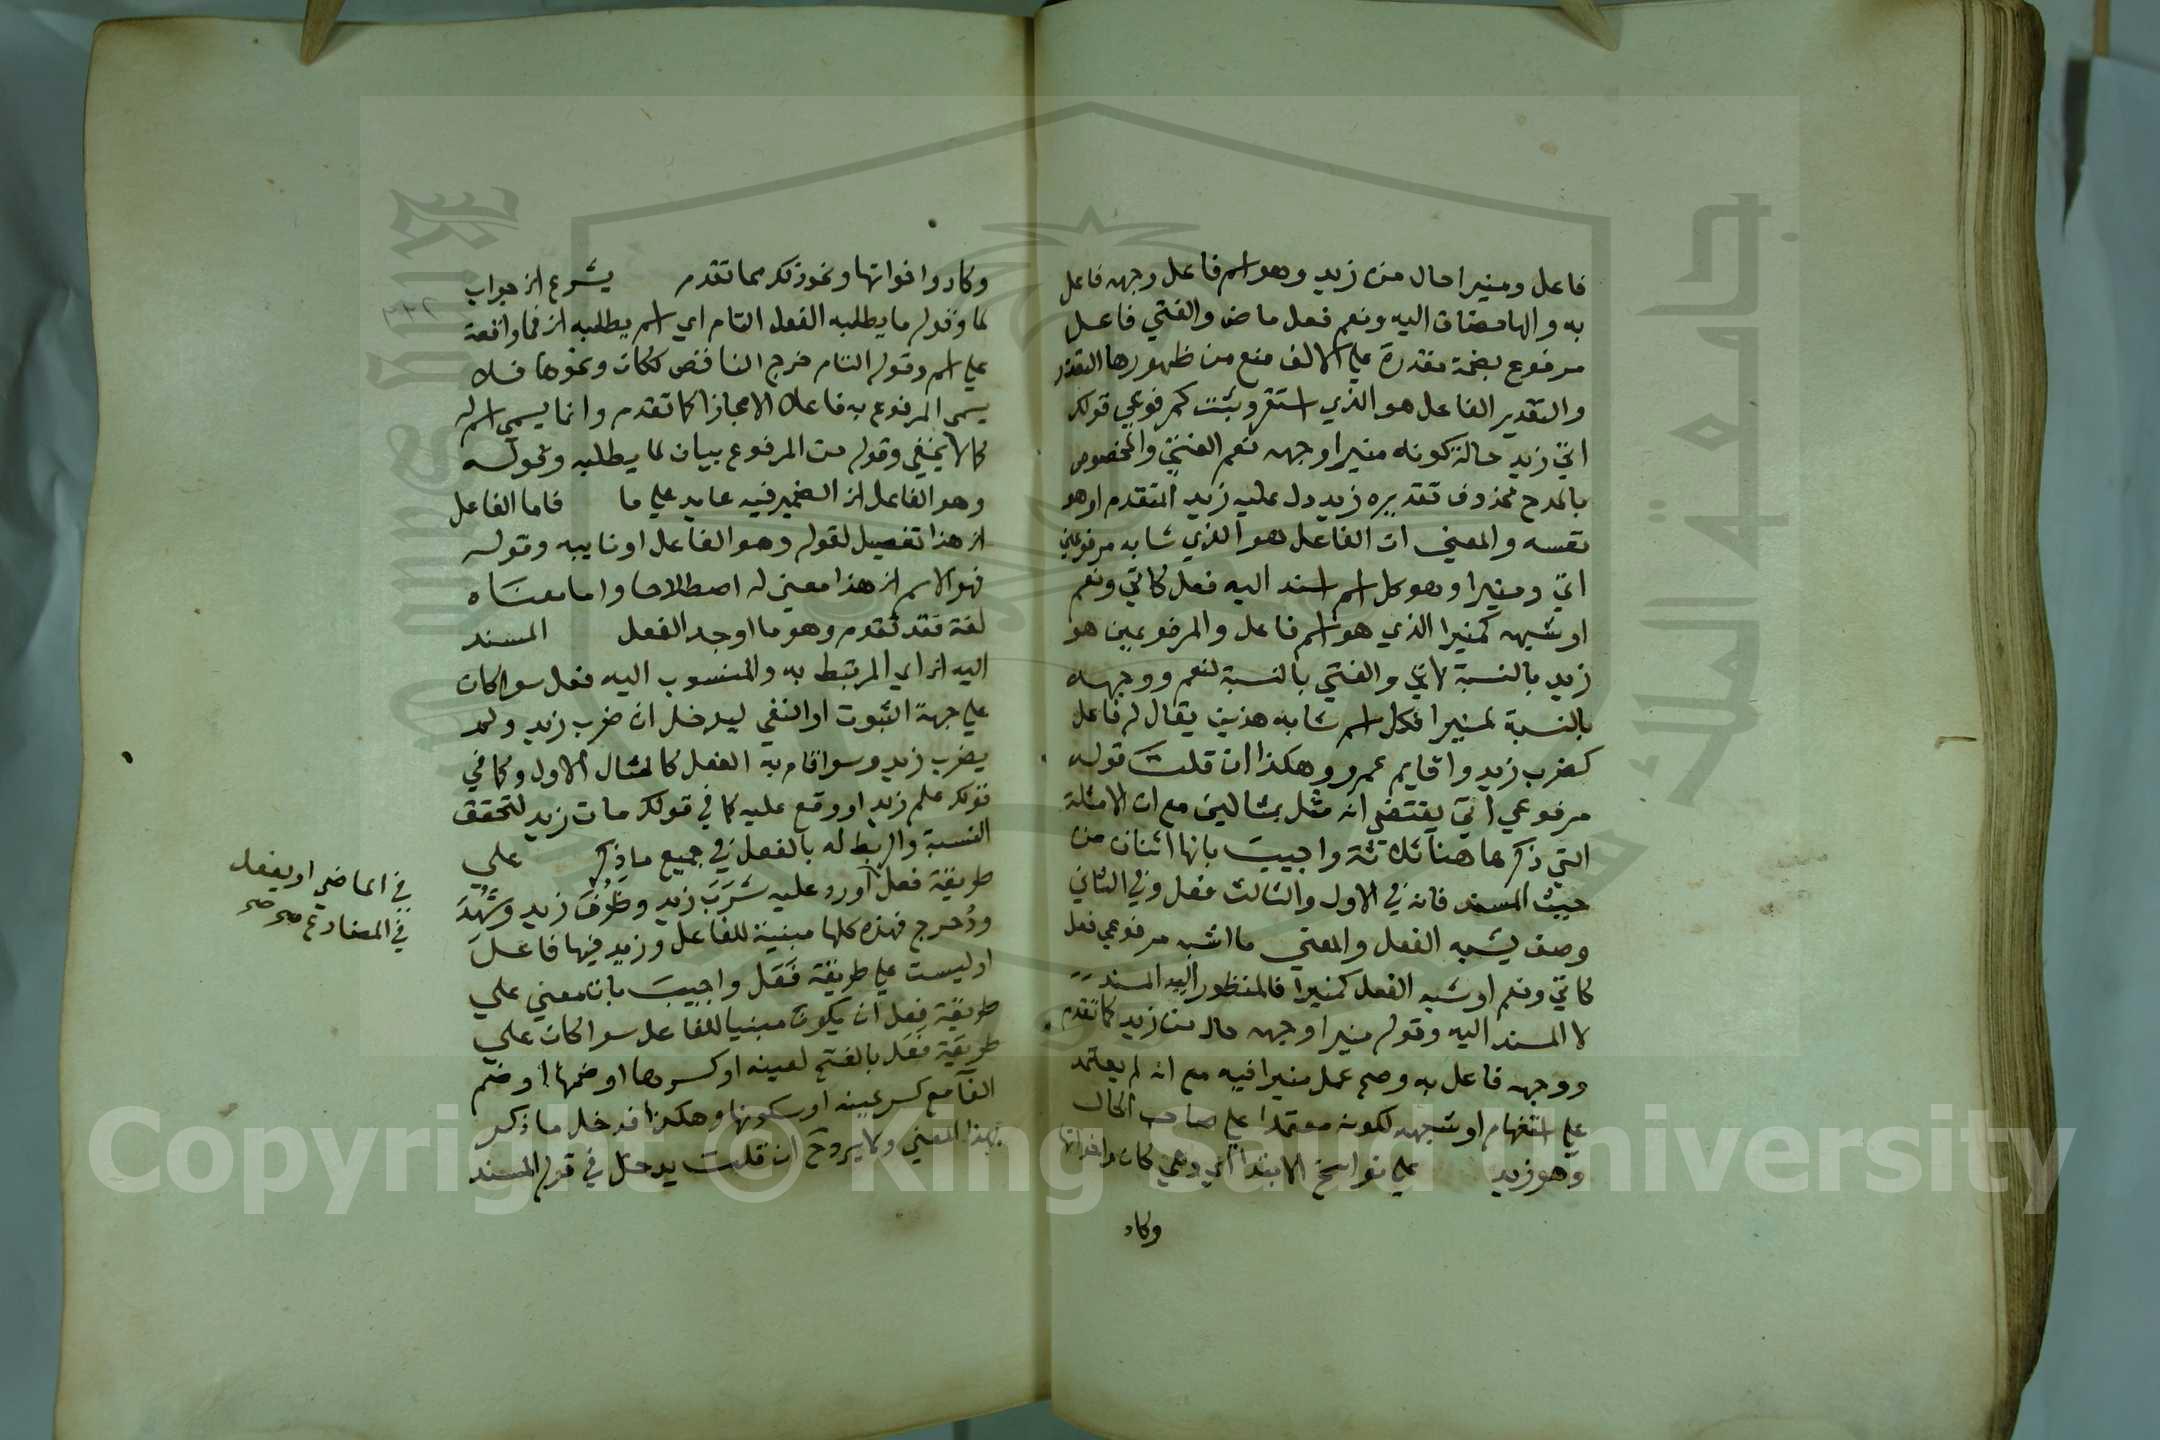 فاعل ومنيرا حال من زيد وهو اسم فاعل وجهه فاعل
به والها مضاف اليه ونعم فعل ماض والفتي فاعل
مرفوع بضمة مقدرة علي الالف منع من ظهورها التعذر
والتقدير الفاعل هو الذي استقر وثبت كمرفوعي قولك
اتي زيد حالة كونه منيرا وجهه نعم الفتي والمخصوص
بالمدح محذوف تقديره زيد دل عليه زيد المتقدم او هو
نفسه والمعني ان الفاعل هو الذي شابه مرفوعي
اتي ومنيرا وهو كل اسم اسند اليه فعل كاتي ونعم
او شبهه كمنيرا الذي هو اسم فاعل والمرفوعين هو
زيد بالنسبة لاتي والفتي بالنسبة لنعم ووجهه
بالنسبة لمنيرا فكل اسم شابه هذين يقال له فاعل
كضرب زيد واقايم عمرو وهكذا ان قلت قوله
مرفوعي اتي يقتضي انه مثل بمثالين مع ان الامثلة
التي ذكرها هنا ثلاثة واجيب بانها اثنان من
حيث المسند فانه في الاول والثالث فعل وفي الثاني
وصف يشبه الفعل والمعني ما اشبه مرفوعي فعل
كاتي ونعم او شبه الفعل كمنيرا فالمنظور اليه المسند
لا المسند اليه وقوله منيرا وجهه حال من زيد كما تقدم
ووجهه فاعل به وصح عمل منيرا فيه مع انه لم يعتمد
علي استفهام او شبهه لكونه معتمدا علي صاحب الحال
وهو زيد علي نواسخ الابتدا اي وهي كان واخواتها
وكاد
وكاد واخواتها ونحو ذلك مما تقدم يشرع الخ جواب
لما وقوله ما يطلبه الفعل التام اي اسم يطلبه الخ فما واقعة
علي اسم وقوله التام خرج الناقص ككان ونحوها فلا
يسمي المرفوع به فاعلا الا مجازا كما تقدم وانما يسمي اسم له
كما لا يخفي وقوله من المرفوع بيان لما يطلبه وقوله
وهو الفاعل الخ الضمير فيه عايد علي ما فاما الفاعل
الخ هذا تفصيل لقوله وهو الفاعل او نايبه وقوله
فهو الاسم الخ هذا معني له اصطلاحا واما معناه
لغة فقد تقدم وهو ما اوجد الفعل المسند
اليه الخ اي المرتبط به والمنسوب اليه فعل سوا كان
علي جهة الثبوت او النفي ليدخل ان ضرب زيد ولم
يضرب زيد وسوا قام به الفعل كالمثال الاول وكما في
قولك علم زيد او وقع عليه كما في قولك مات زيد لتحقق
النسبة والربط له بالفعل في جميع ما ذكر علي
طريقة فعل اورد عليه شَرَبَ زيد وظَرُفَ زيد وشَهِدَ
ودُحرج فهذه كلها مبنية للفاعل وزيد فيها فاعل
وليست علي طريقة فَعَل واجيب بان معني علي
طريقة فعل ان يكون مبنيا للفاعل سوا كان علي
طريقة فَعَل بالفتح لعينه او كسرها او ضمها او ضم
الفا مع كسر عينه او سكونها وهكذا فدخل ما ذكر
بهذا المعني ان قلت يدخل في قوله المسند
في الماضي او يفعل
في المضارع صح صح
Copyright © King Saud University